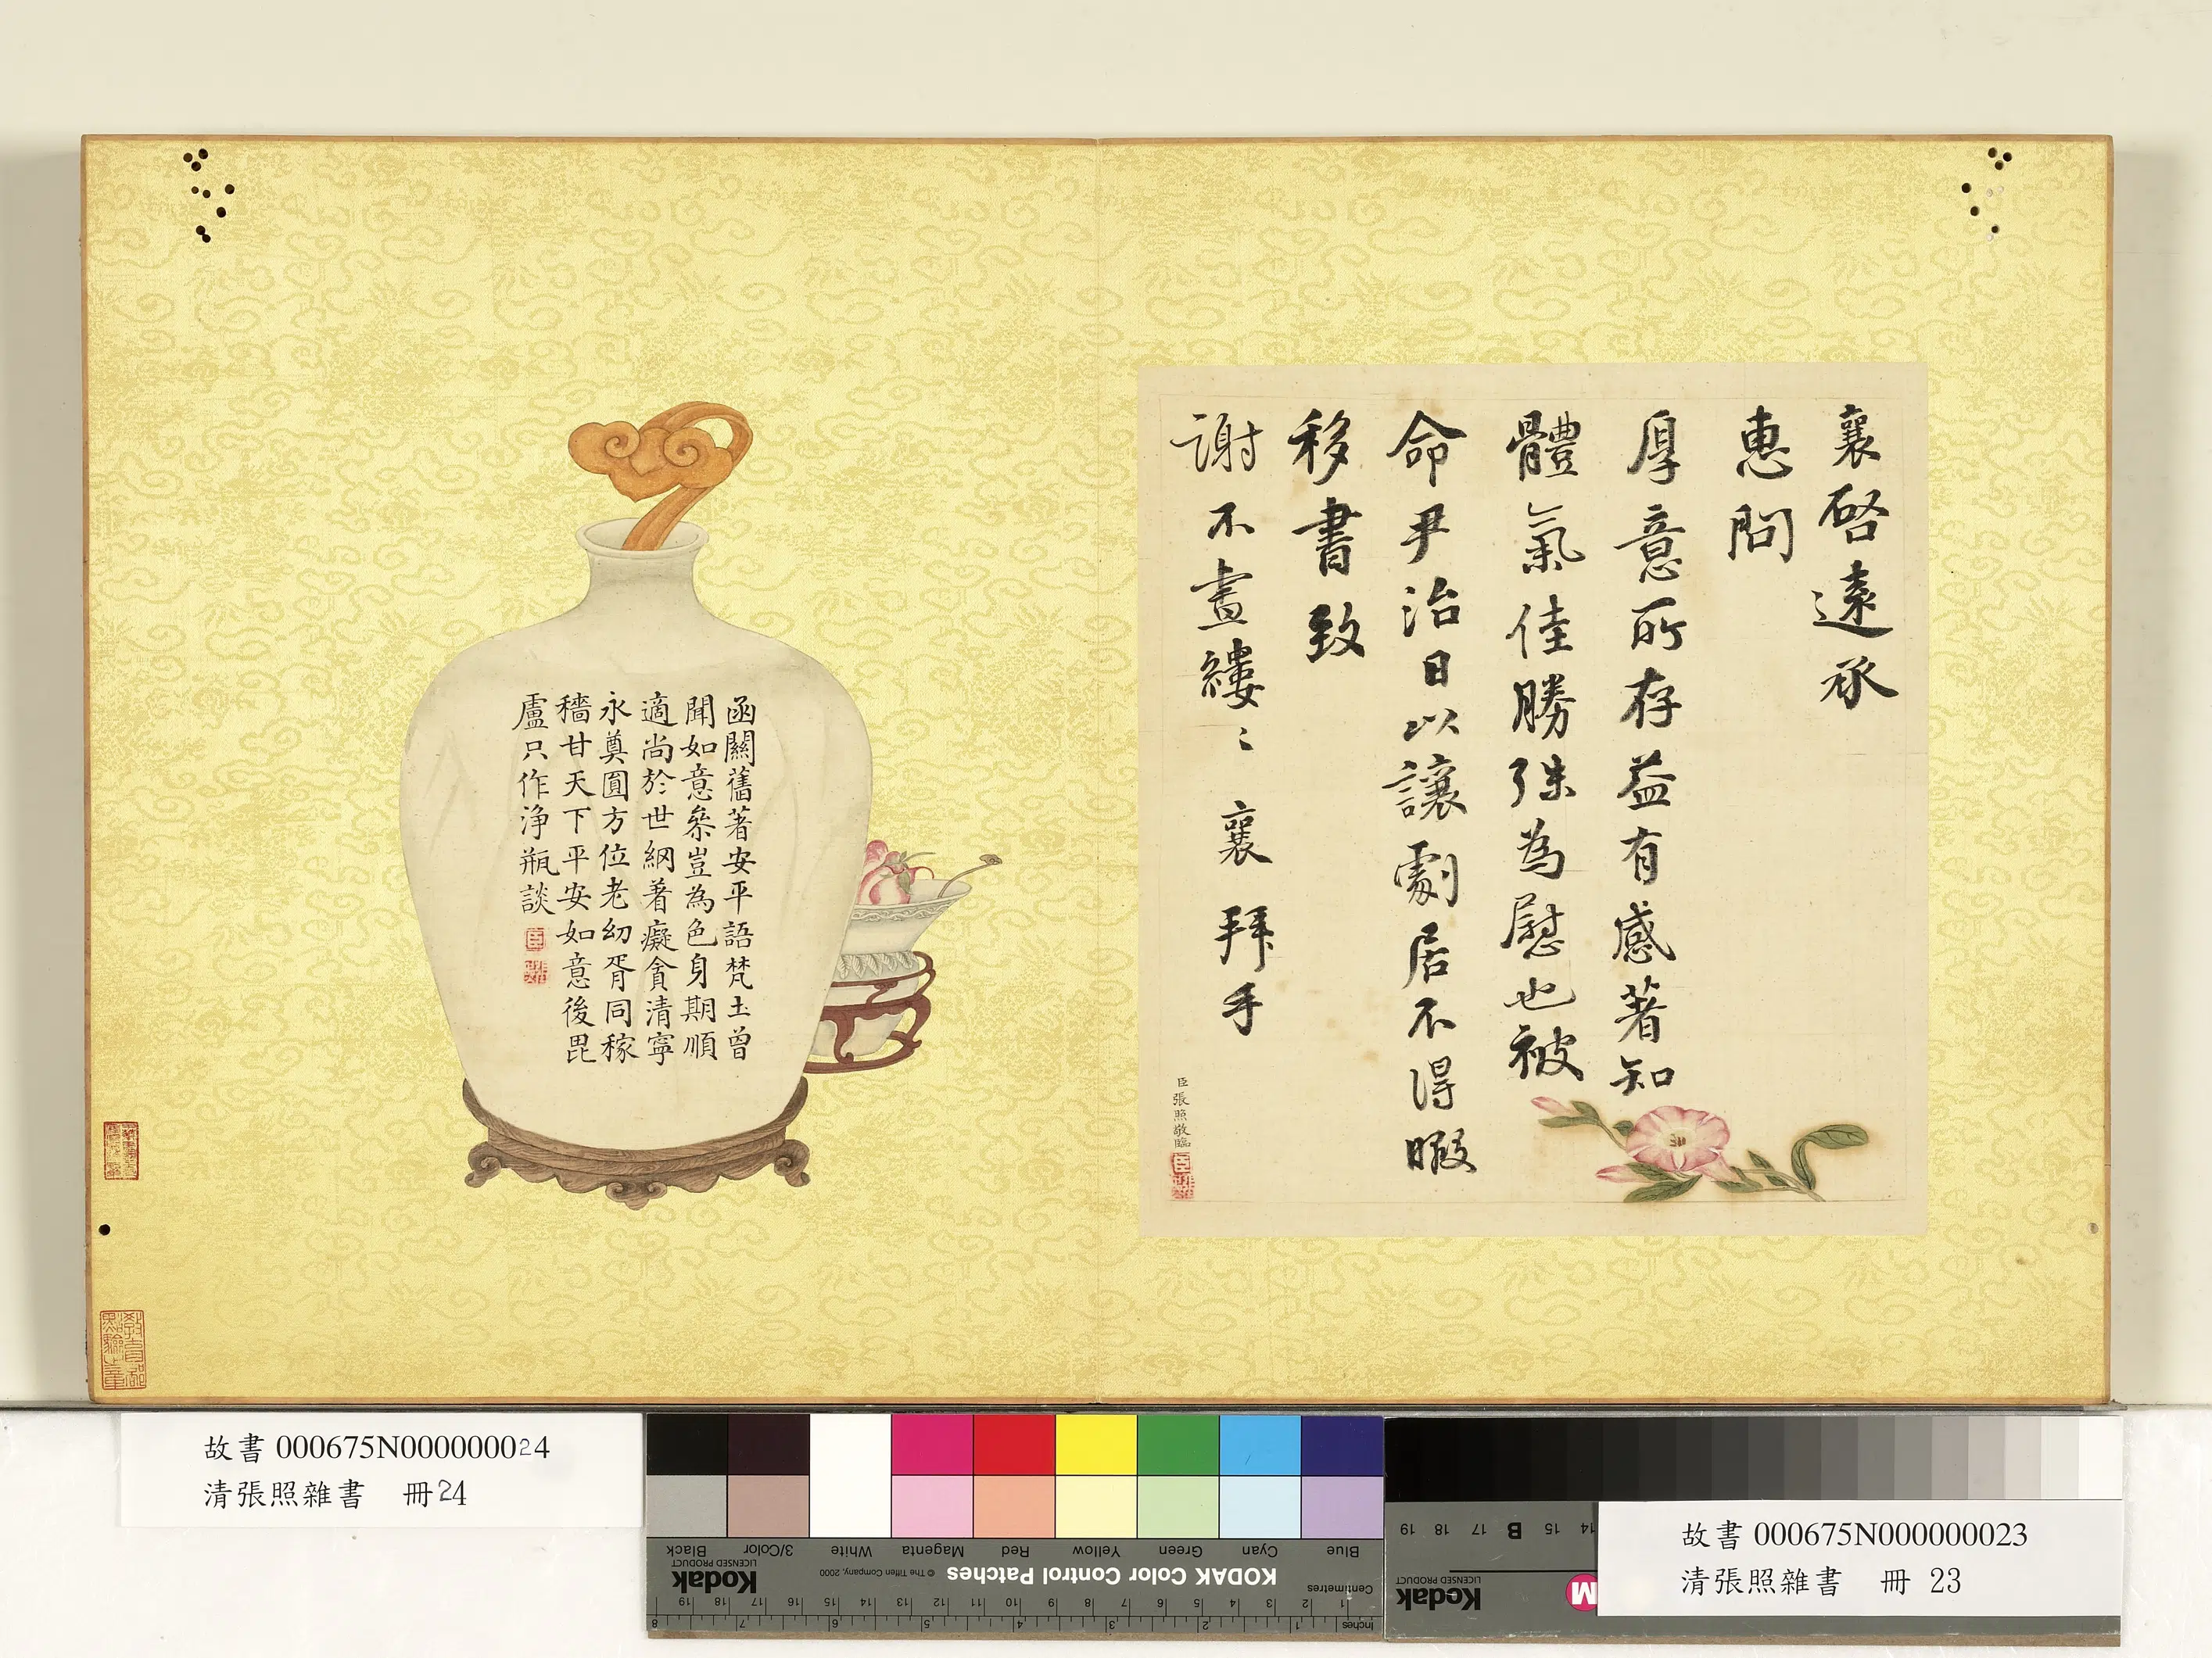 襄啓遠承
惠問
厚意所存益有感著知
體氣佳勝殊為慰也被
命尹治日以讓劇居不得暇
移書致
謝不盡縷〻 襄 拜手
臣張照敬臨
函關舊著安平語梵土曾
聞如意叅豈為色身期順
適尚於世網著癡貪清寧
永奠圓方位老幼胥同稼
穡甘天下平安如意後毘
盧只作淨瓶談
故書 000675N000000024
清張照雜書 冊24
故書 000675N000000023
清張照雜書 冊 23
Blue
Cyan
Green
Yellow
Red
Magenta
White
3/Color
Black
KODAK Color Control Patches
© The Tiffen Company, 2000
Kodak
LICENSED PRODUCT
Centimetres
Inches
1 2 3 4 5 6 7 8 9 10 11 12 13 14 15 16 17 18 19
1 2 3 4 5 6 7 8
Kodak
LICENSED PRODUCT
M
14 15 B 17 18 19